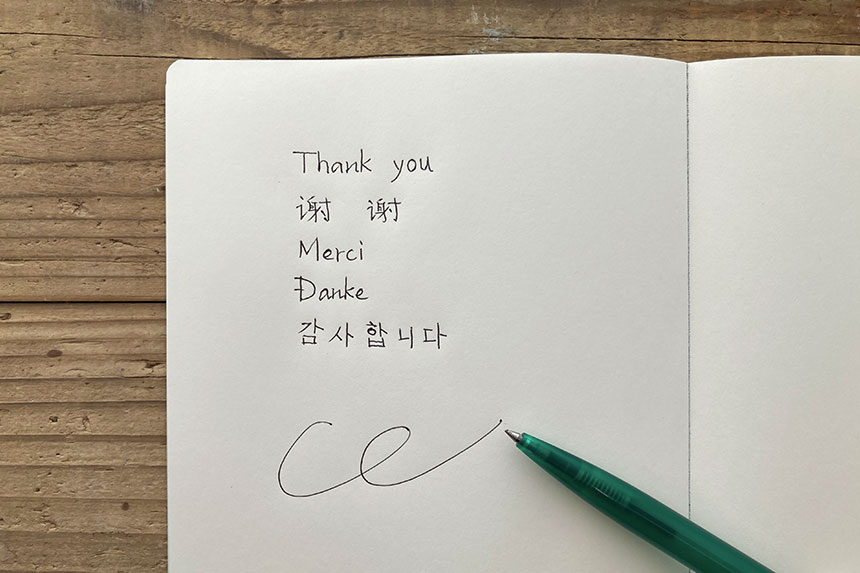 Thank you
谢 谢
Merci
Đanke
감사합니다
ce